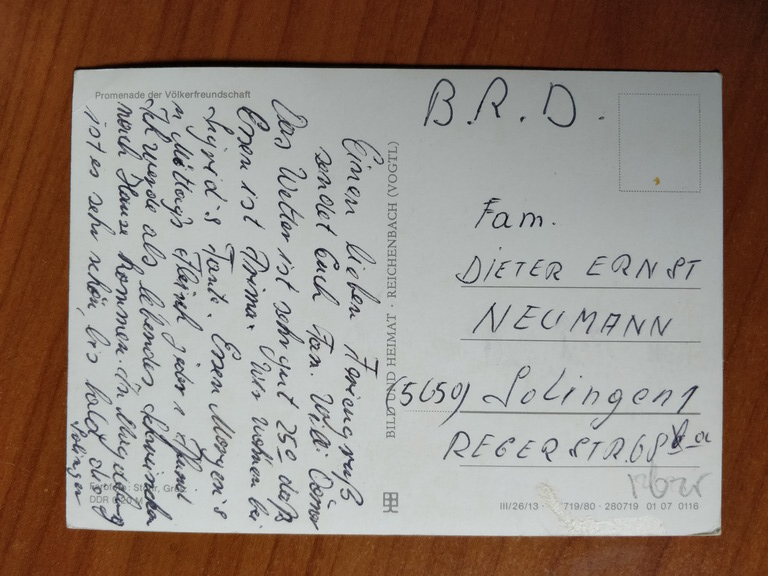 Promenade der Völkerfreundschaft
Einen lieben Feriengruß
sendet Euch Fam. Willi
Das Wetter ist sehr gut 25° daß
Essen ist Prima. Wir wohnen bei
Sigrid's Tante. Essen Morgen's
n Mittag's Fleisch jeder 1 Pfund
Ich werde als lebendes Schwein
nach Hause kommen. In
ist es sehr schön, bis bald
Solingen
DDR
BILD UND HEIMAT · REICHENBACH (VOGTL)
B.R.D.
Fam.
DIETER ERNST
NEUMANN
(5650) Solingen 1
REGERSTR. 68
III/26/13 · 719/80 · 280719 01 07 0116